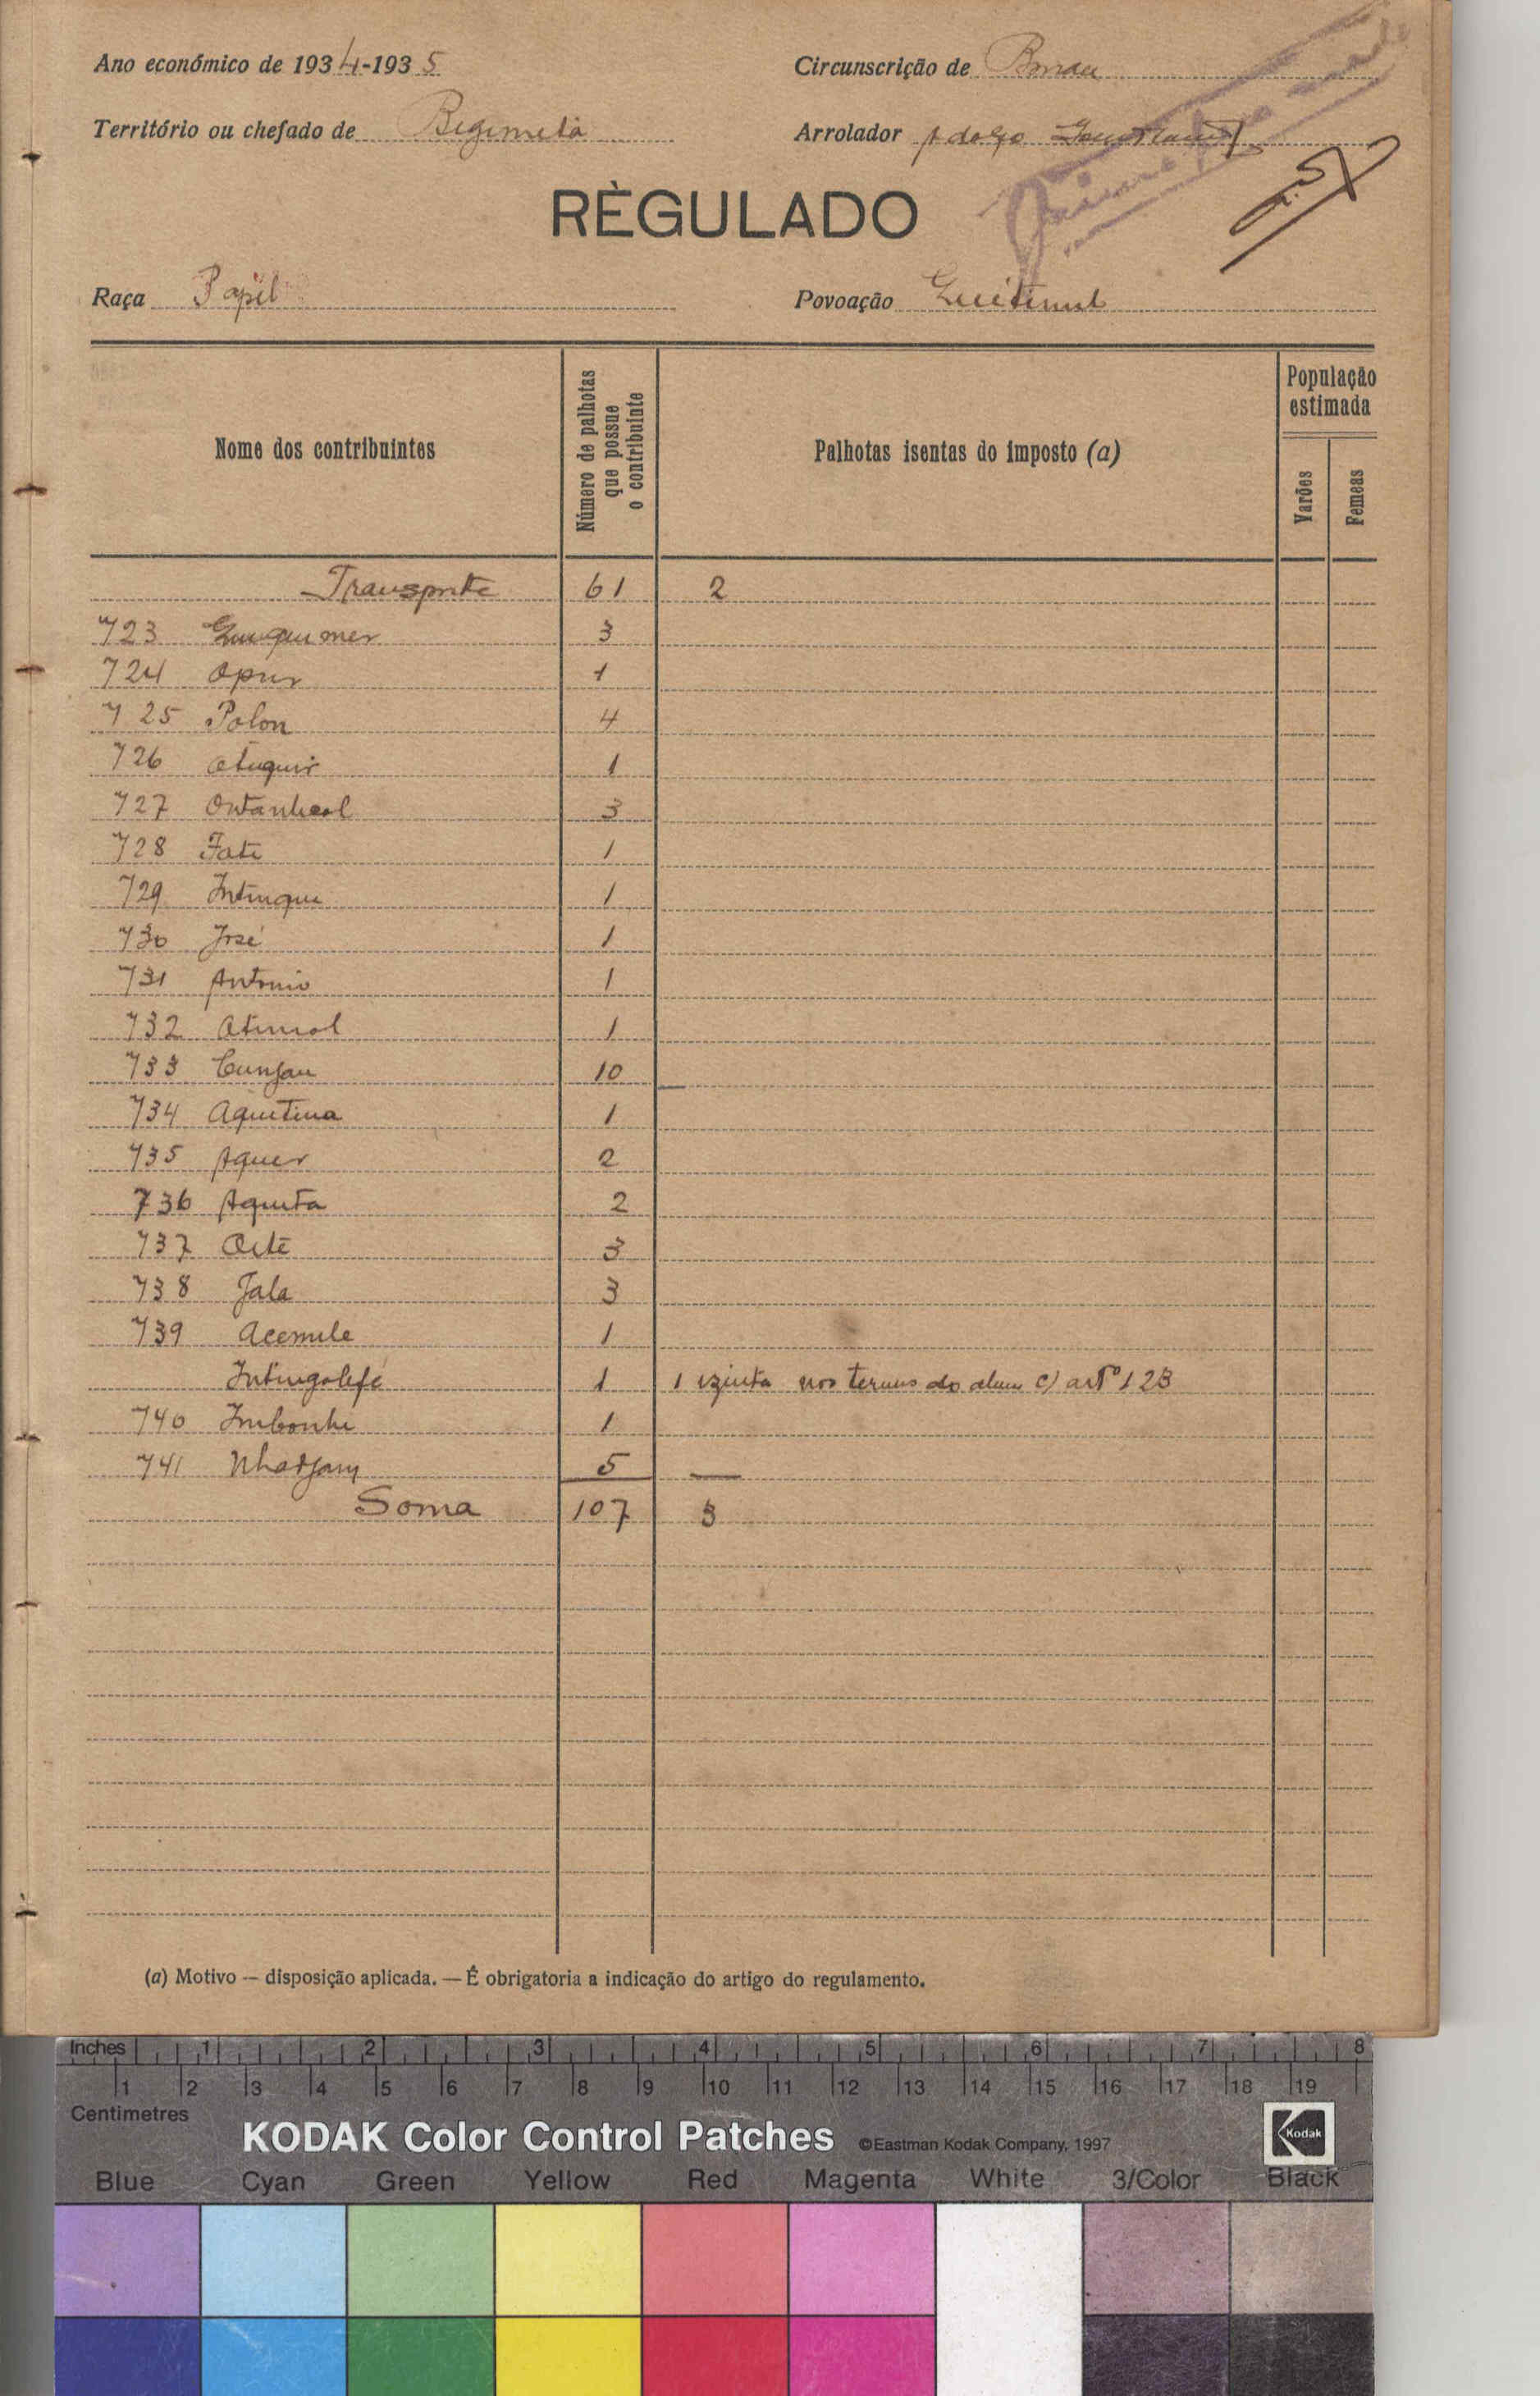 Ano económico de 1934-1935
Circunscrição de Bissau
Território ou chefado de Bigimitá
Arrolador Adolfo
RÈGULADO
Raça Papil
Povoação
Nome dos contribuintes
Número de palhotas que possue o contribuinte
Palhotas isentas do imposto (a)
População estimada
Varões
Femeas
Transporte 61 2
723 3
724 Opur 1
725 Polon 4
726 1
727 3
728 Fati 1
729 Intinque 1
730 José 1
731 Antonio 1
732 1
733 10
734 Aquitina 1
735 Aquer 2
736 Aquita 2
737 3
738 Jala 3
739 Acemule 1
Intingolefé 1 1 izinta nos termos do alinea c) artº 123
740 1
741 5
Soma 107 3
(a) Motivo — disposição aplicada. — É obrigatoria a indicação do artigo do regulamento.
Inches 1 2 3 4 5 6 7 8
1 2 3 4 5 6 7 8 9 10 11 12 13 14 15 16 17 18 19
Centimetres
KODAK Color Control Patches ©Eastman Kodak Company, 1997 Kodak
Blue Cyan Green Yellow Red Magenta White 3/Color Black